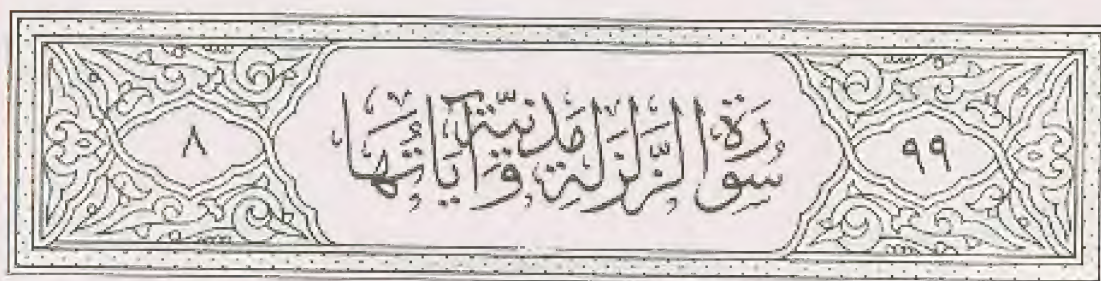 ٩٩
سُورَةُ الزَّلْزَلَةِ مَدَنِيَّةٌ وَآيَاتُهَا
٨